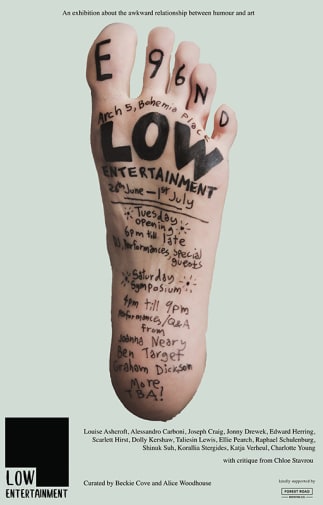 An exhibition about the awkward relationship between humour and art
E 96 N D
Arch 5, Bohemia Place
LOW
ENTERTAINMENT
26th June – 1st July
Tuesday
opening
6pm till late
DJ, Performances, special
guests
Saturday
Symposium
4pm till 9pm
Performances/Q&A
from
Joanna Neary
Ben Target
Graham Dickson
More
TBA!
Louise Ashcroft, Alessandro Carboni, Joseph Craig, Jonny Drewek, Edward Herring,
Scarlett Hirst, Dolly Kershaw, Taliesin Lewis, Ellie Pearch, Raphael Schulenburg,
Shinuk Suh, Korallia Stergides, Katja Verheul, Charlotte Young
with critique from Chloe Stavrou
LOW
ENTERTAINMENT
Curated by Beckie Cove and Alice Woodhouse
kindly supported by
FOREST ROAD